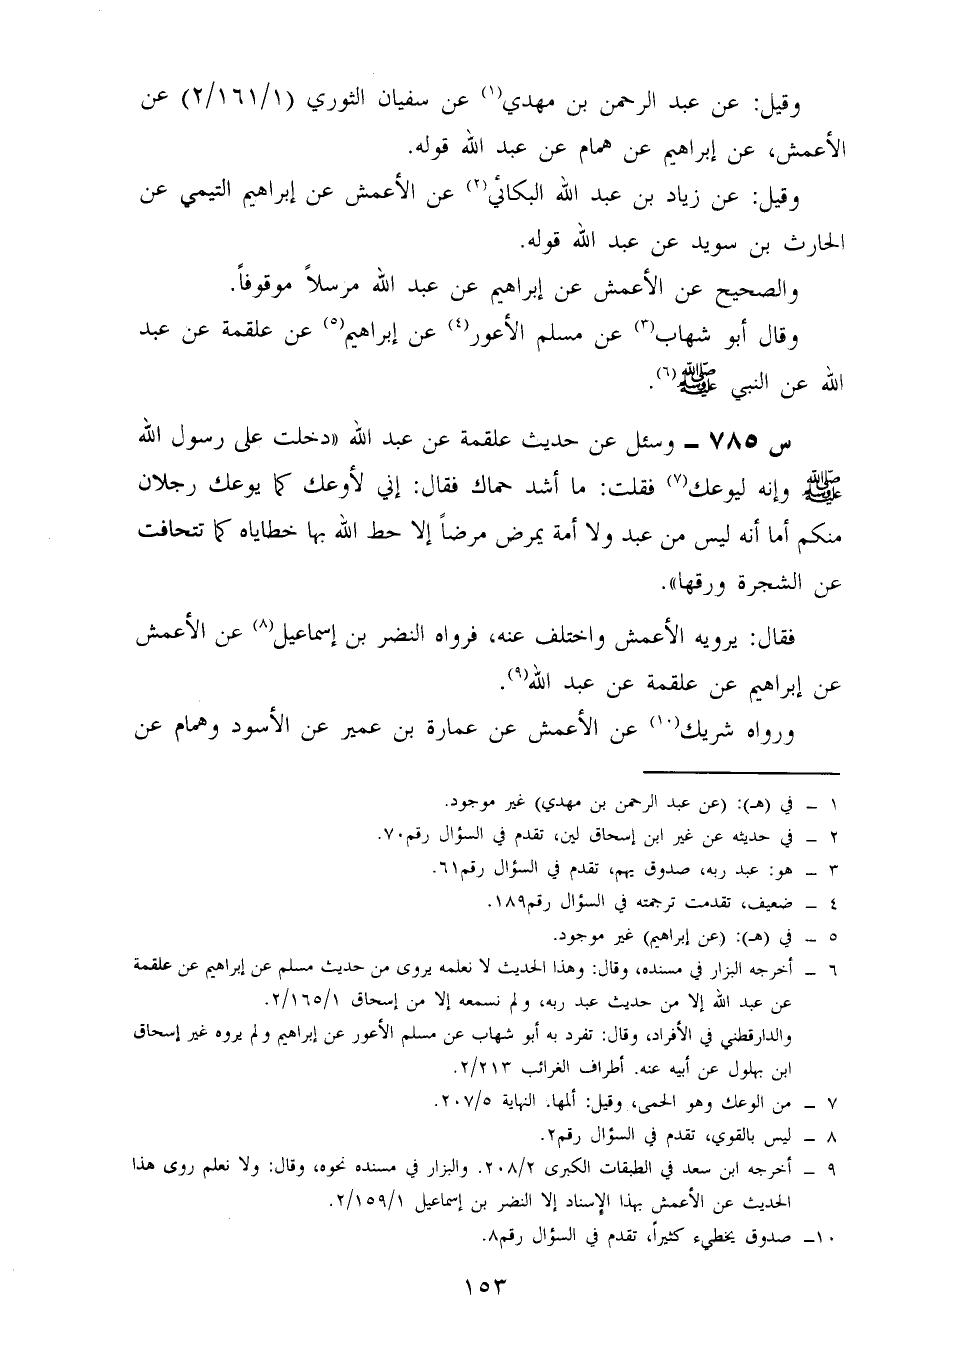 وقيل: عن عبد الرحمن بن مهدي(١) عن سفيان الثوري (٢/١٦١/١) عن
الأعمش، عن إبراهيم عن همام عن عبد الله قوله.
وقيل: عن زياد بن عبد الله البكائي(٢) عن الأعمش عن إبراهيم التيمي عن
الحارث بن سويد عن عبد الله قوله.
والصحيح عن الأعمش عن إبراهيم عن عبد الله مرسلاً موقوفاً.
وقال أبو شهاب(٣) عن مسلم الأعور(٤) عن إبراهيم(٥) عن علقمة عن عبد
الله عن النبي ﷺ(٦).
س ٧٨٥ ـ وسئل عن حديث علقمة عن عبد الله «دخلت على رسول الله
ﷺ وإنه ليوعك(٧) فقلت: ما أشد حماك فقال: إني لأوعك كما يوعك رجلان
منكم أما أنه ليس من عبد ولا أمة يمرض مرضاً إلا حط الله بها خطاياه كما تتحافت
عن الشجرة ورقها».
فقال: يرويه الأعمش واختلف عنه، فرواه النضر بن إسماعيل(٨) عن الأعمش
عن إبراهيم عن علقمة عن عبد الله(٩).
ورواه شريك(١٠) عن الأعمش عن عمارة بن عمير عن الأسود وهمام عن
١ ـ في (هـ): (عن عبد الرحمن بن مهدي) غير موجود.
٢ ـ في حديثه عن غير ابن إسحاق لين، تقدم في السؤال رقم٧٠.
٣ ـ هو: عبد ربه، صدوق يهم، تقدم في السؤال رقم٦١.
٤ ـ ضعيف، تقدمت ترجمته في السؤال رقم١٨٩.
٥ ـ في (هـ): (عن إبراهيم) غير موجود.
٦ ـ أخرجه البزار في مسنده، وقال: وهذا الحديث لا نعلمه يروى من حديث مسلم عن إبراهيم عن علقمة
عن عبد الله إلا من حديث عبد ربه، ولم نسمعه إلا من إسحاق ٢/١٦٥/١.
والدارقطني في الأفراد، وقال: تفرد به أبو شهاب عن مسلم الأعور عن إبراهيم ولم يروه غير إسحاق
ابن بهلول عن أبيه عنه. أطراف الغرائب ٢/٢١٣.
٧ ـ من الوعك وهو الحمى، وقيل: ألمها. النهاية ٢٠٧/٥.
٨ ـ ليس بالقوي، تقدم في السؤال رقم٢.
٩ ـ أخرجه ابن سعد في الطبقات الكبرى ٢٠٨/٢. والبزار في مسنده نحوه، وقال: ولا نعلم روى هذا
الحديث عن الأعمش بهذا الإسناد إلا النضر بن إسماعيل ٢/١٥٩/١.
١٠ـ صدوق يخطيء كثيراً، تقدم في السؤال رقم٨.
١٥٣